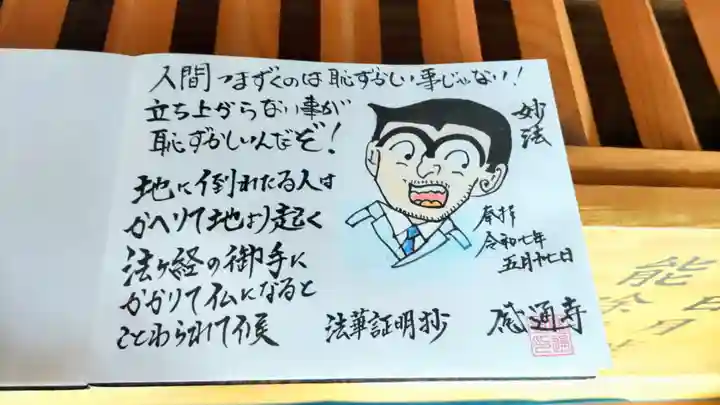 人間つまずくのは恥ずかしい事じゃない！
立ち上がらない事が
恥ずかしいんだぞ！
地に倒れたる人は
かへりて地より起く
法ヶ経の御手に
かかりて仏になると
ことわられて候
法華証明抄
妙法
奉拝
令和七年
五月廿七日
感通寺
能